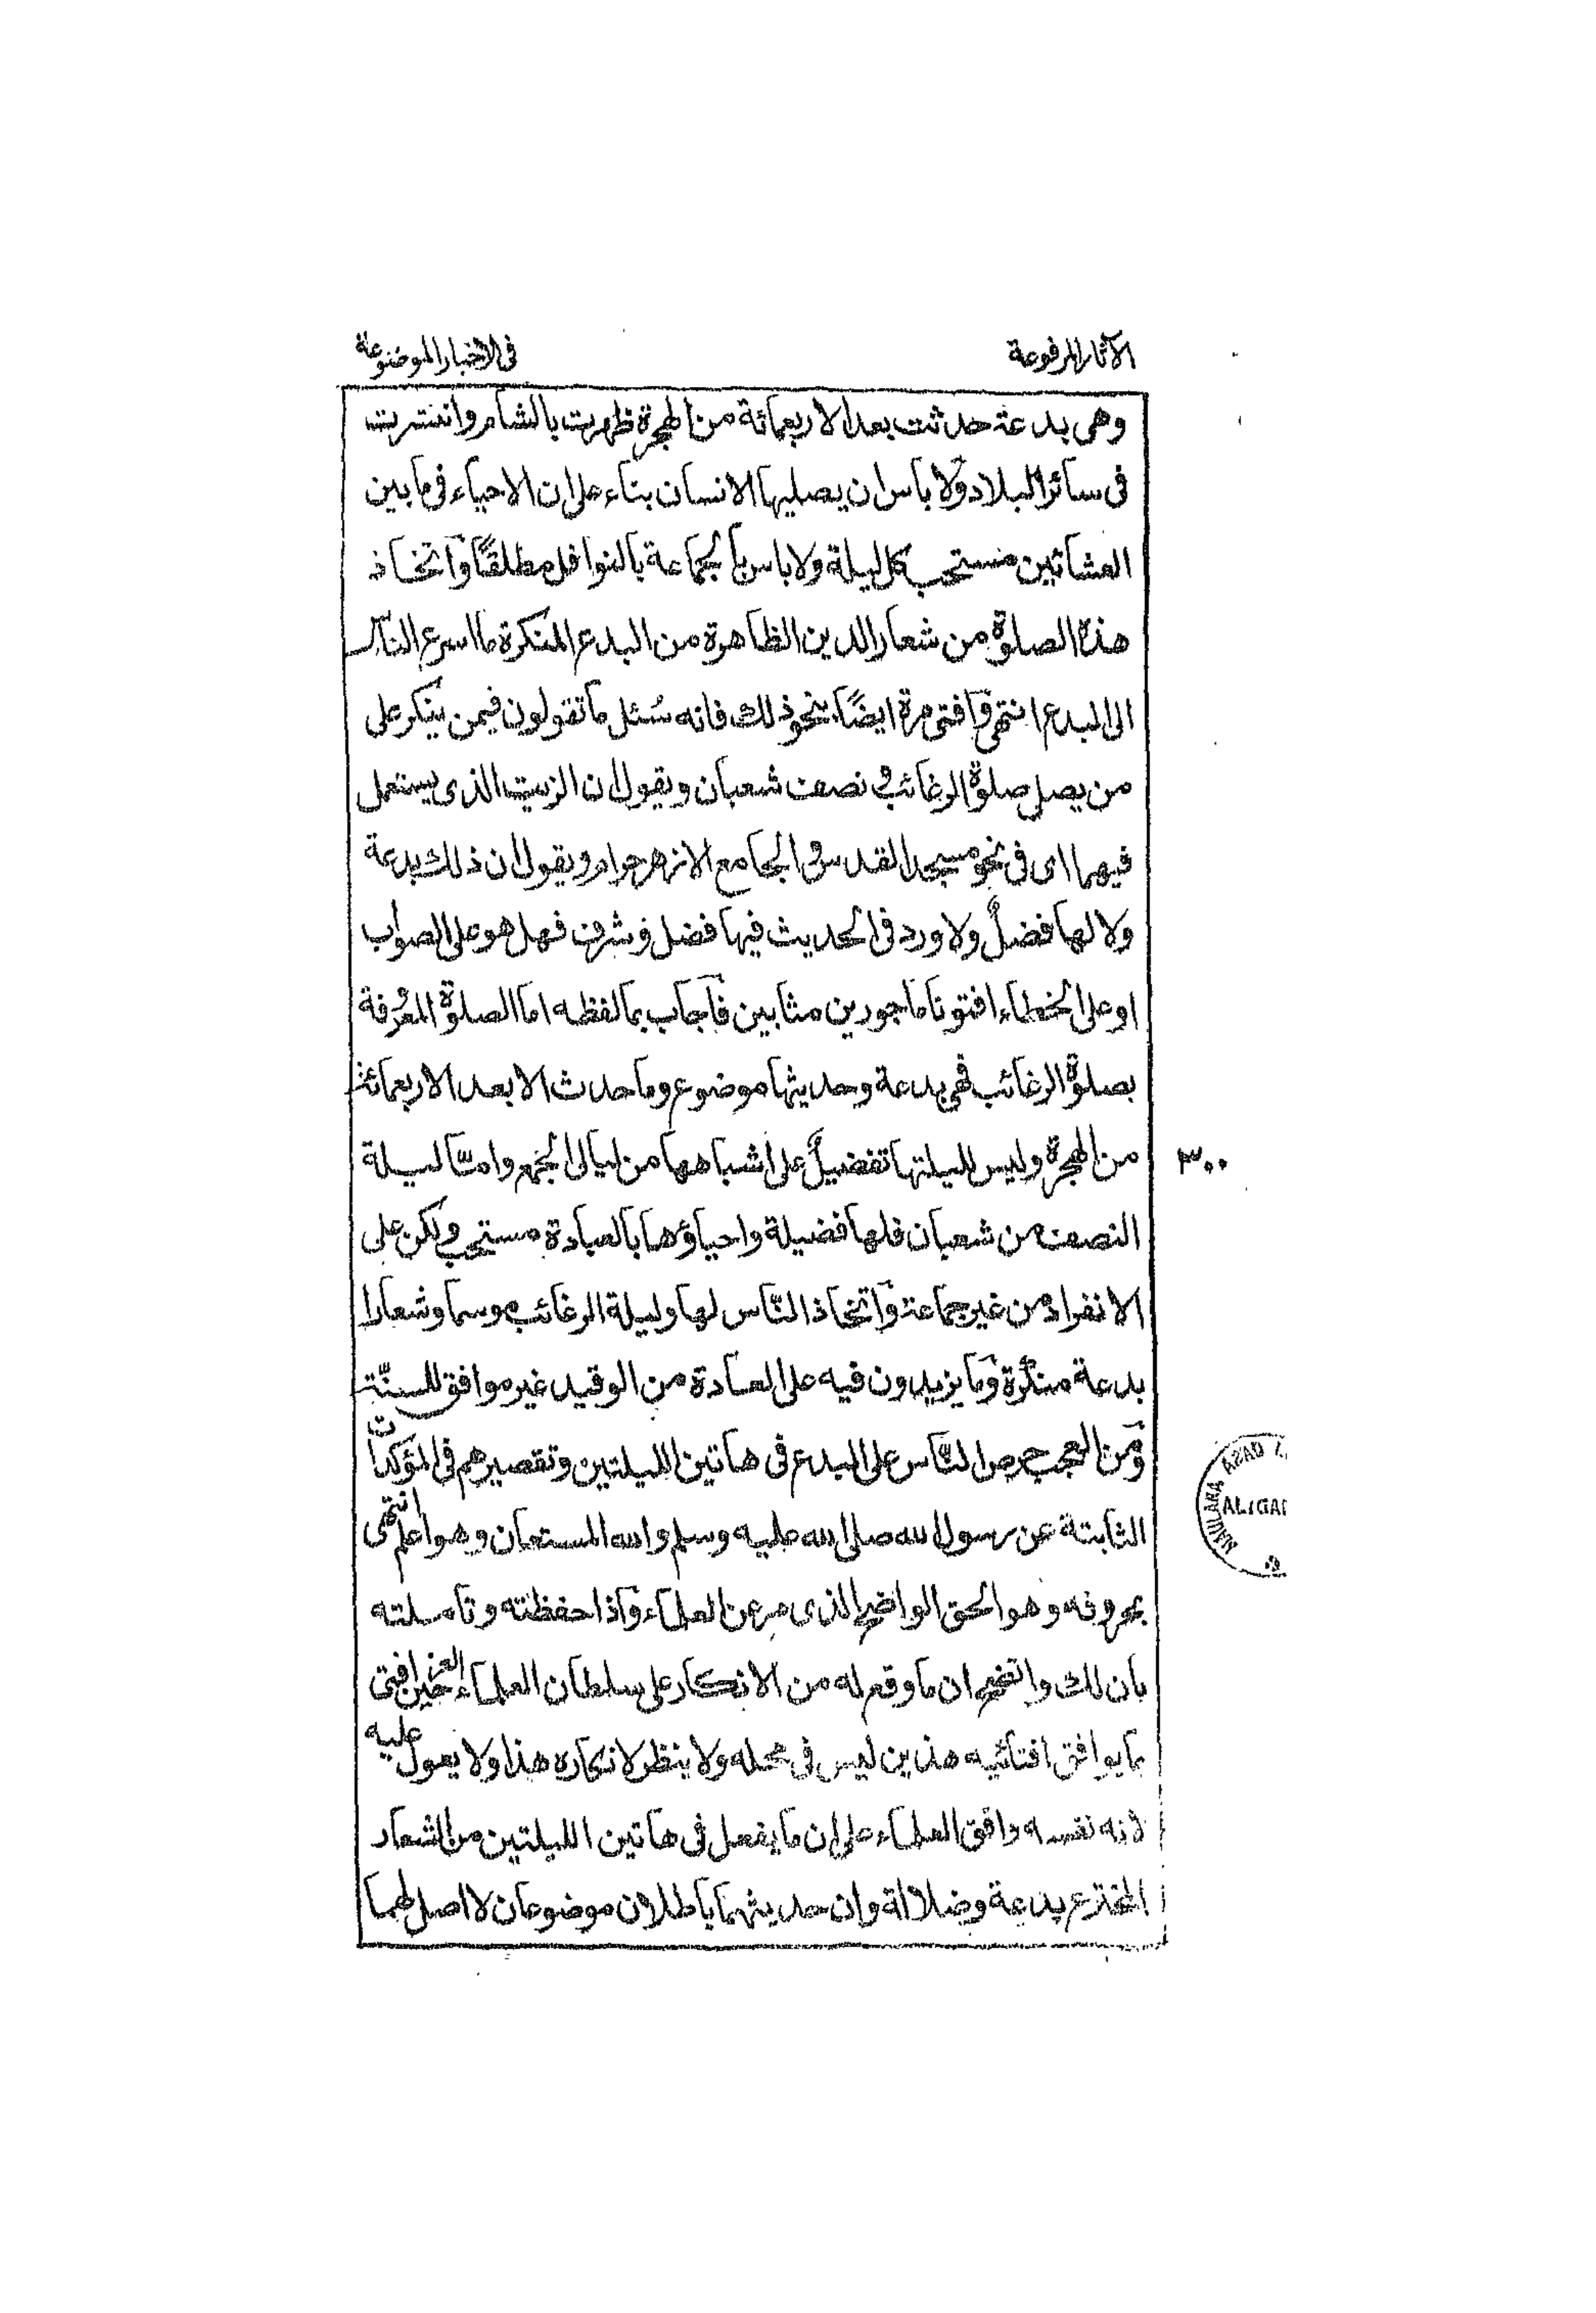 الآثار المرفوعة
فى الاخبار الموضوعة
وهى بدعة حدثت بعد الاربعمائة من الهجرة ظهرت بالشام وانتشرت
فى سائر البلاد ولا باس ان يصليها الانسان بناء على ان الاحياء فى ما بين
العشائين مستحب كل ليلة ولا باس بالجماعة بالنوافل مطلقًا واتخاذ
هذه الصلوة من شعار الدين الظاهرة من البدع المنكرة ما اسرع الناس
الى البدع انتهى وافتى مرة ايضًا بنحو ذلك فانه سُئل ما تقولون فيمن ينكر على
من يصلى صلوة الرغائب فى نصف شعبان ويقول ان الزيت الذى يستعمل
فيهما اى فى نحو مسجد القدس والجامع الازهر حرام ويقول ان ذلك بدعة
ولا لها فضلٌ ولا ورد فى الحديث فيها فضل وشرف فهل هو على الصواب
او على الخطاء افتونا ماجورين مثابين فاجاب بما لفظه اما الصلوة المعرفة
بصلوة الرغائب فهى بدعة وحديثها موضوع وما حدث الا بعد الاربعمائة
من الهجرة وليس لليلتها تفضيلٌ على اشباهها من ليالى الجمع وامّا ليلة
٣٠٠
النصف من شعبان فلها فضيلة واحياؤها بالعبادة مستحب ولكن على
الانفراد من غير جماعة واتخاذ النّاس لها وليلة الرغائب موسما وشعارا
بدعة منكرة وما يزيدون فيه على العادة من الوقيد غير موافق للسنّة
ومن العجب حرص النّاس على البدع فى هاتين الليلتين وتقصيرهم فى المؤكدات
الثابتة عن رسول الله صلى الله عليه وسلم والله المستعان وهو اعلم انتهى
بحروفه وهو الحق الواضح الذى مر عن العلماء واذا حفظته وتاملته
بان لك واتضح ان ما وقع له من الانكار على سلطان العلماء العز حين افتى
بما يوافق افتائيه هذين ليس فى محله ولا ينظر لانكاره هذا ولا يعول عليه
لانه نفسه وافق العلماء على ان ما يفعل فى هاتين الليلتين من الشعار
المخترع بدعة وضلالة وان حديثهما باطلان موضوعان لا اصل لهما
MAULANA AZAD